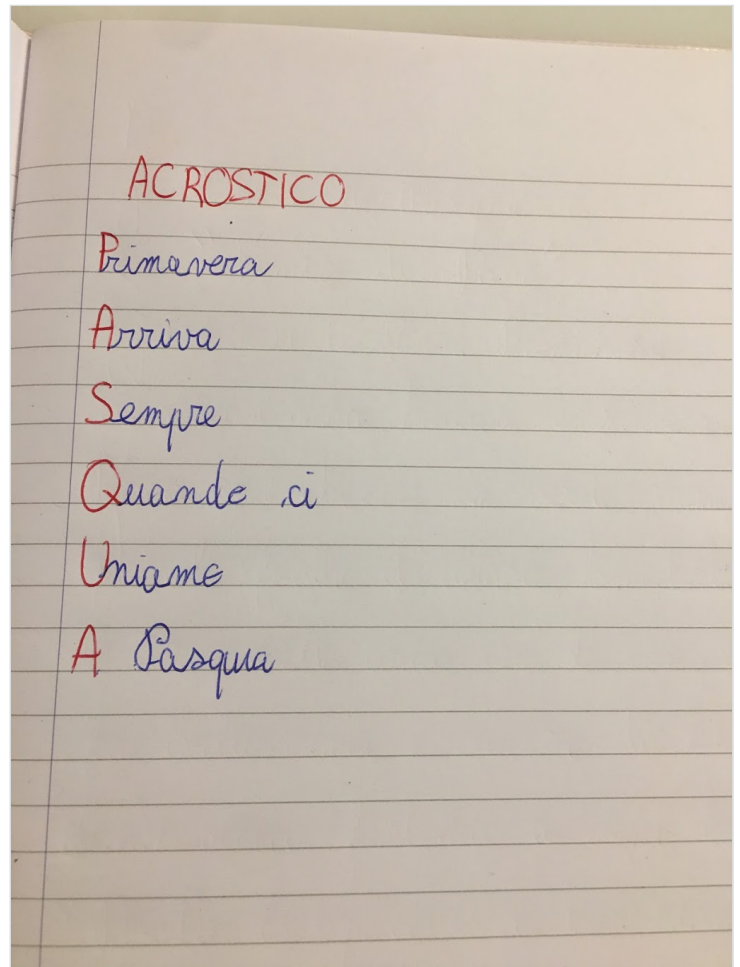 ACROSTICO
Primavera
Arriva
Sempre
Quando ci
Uniamo
A Pasqua